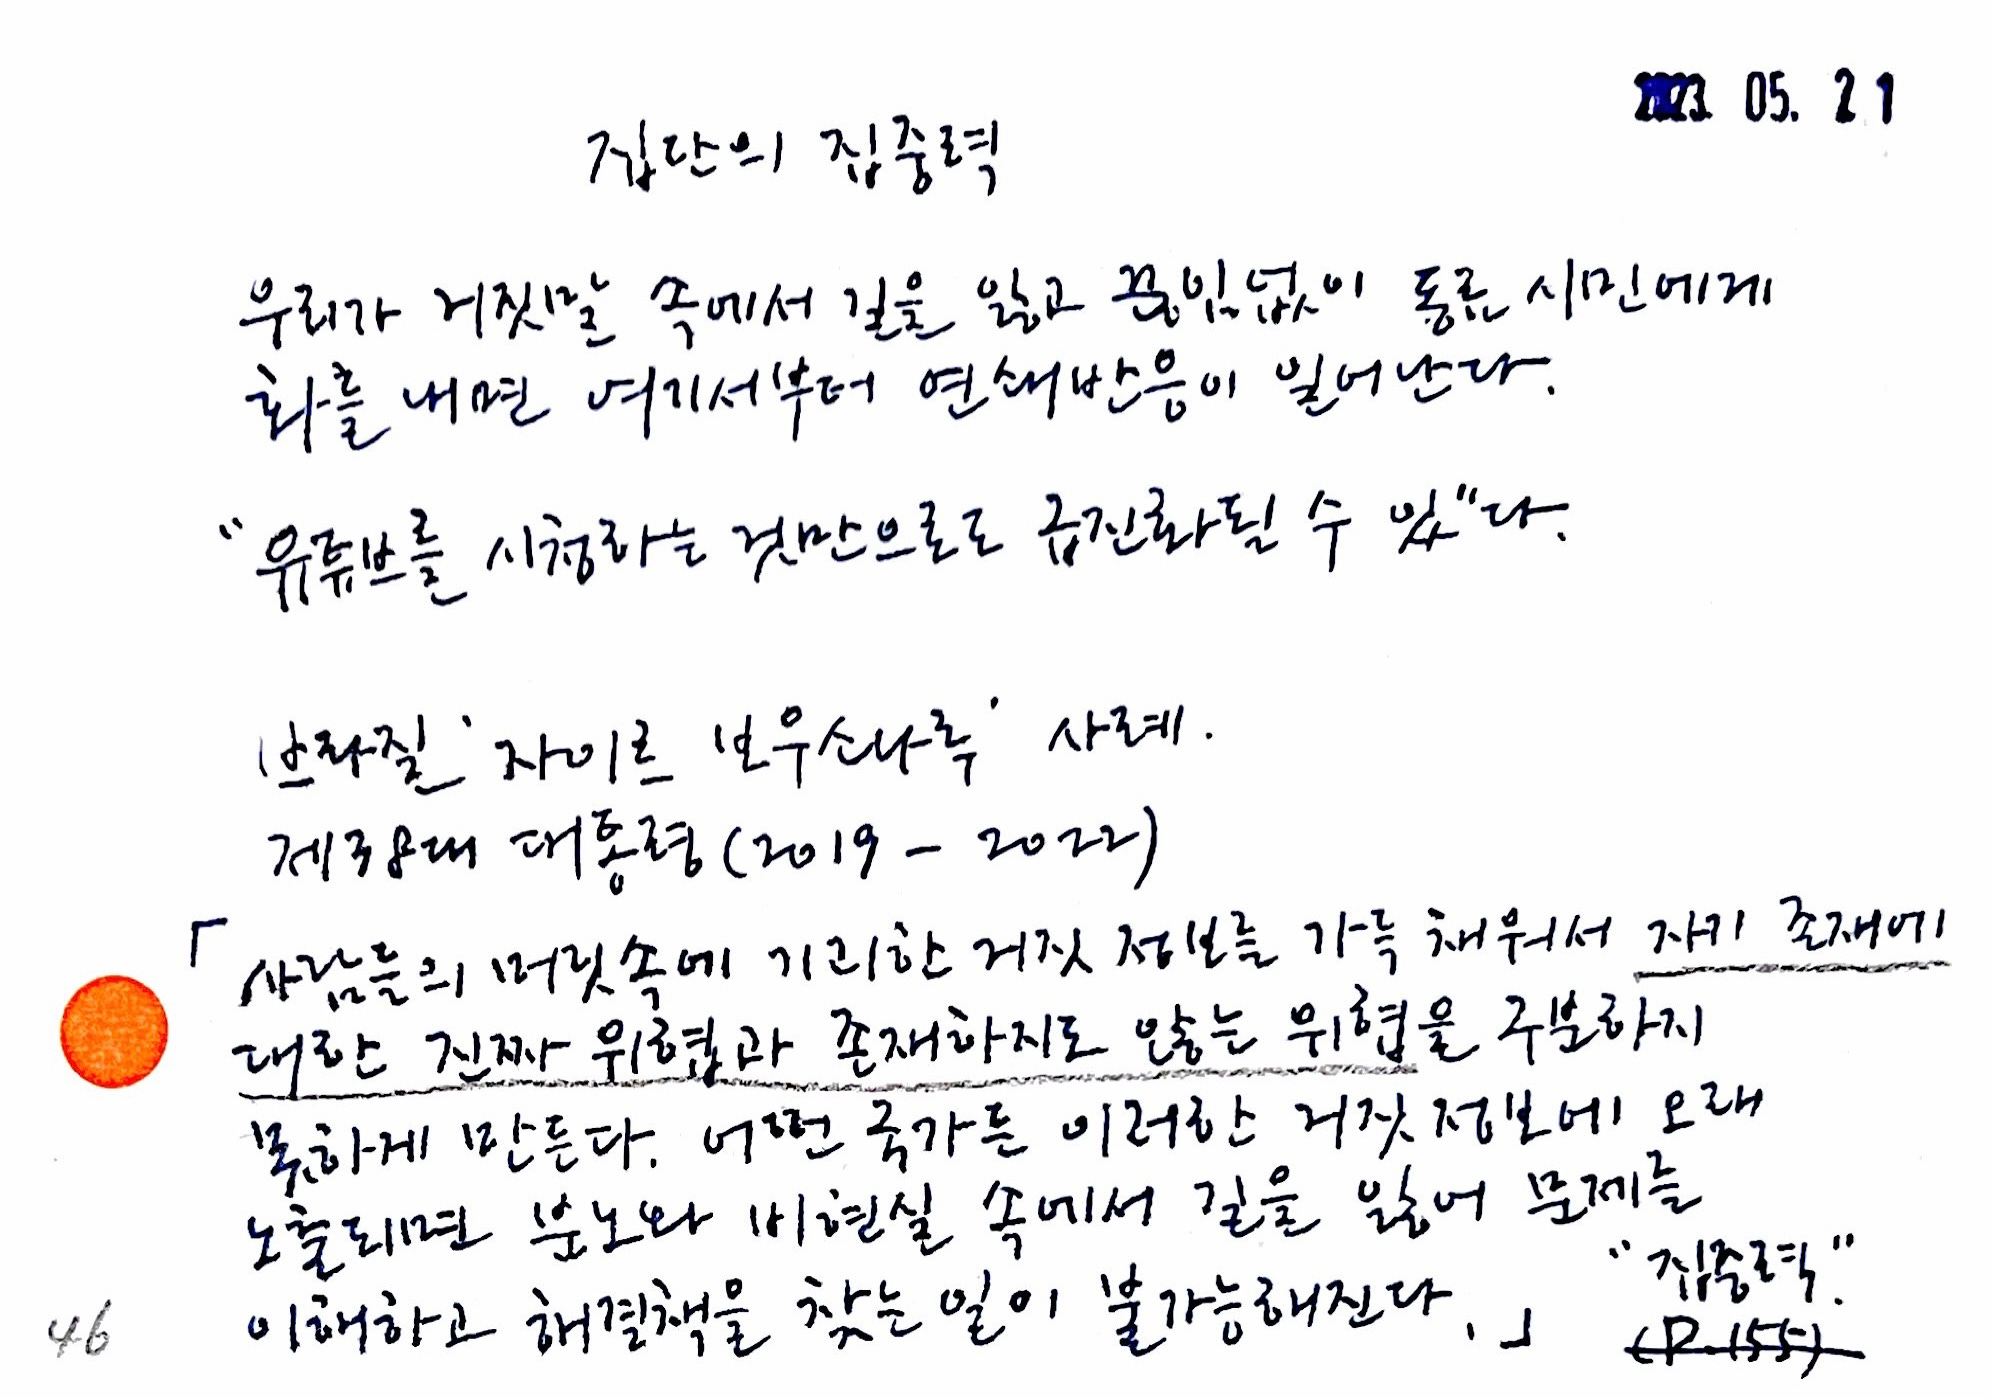 2023. 05. 21
집단의 집중력
우리가 거짓말 속에서 길을 잃고 끊임없이 동료 시민에게
화를 내면 여기서부터 연쇄반응이 일어난다.
"유튜브를 시청하는 것만으로도 급진화될 수 있"다.
브라질 '자이르 보우소나루' 사례.
제38대 대통령(2019 - 2022)
「사람들의 머릿속에 기괴한 거짓 정보를 가득 채워서 자기 존재에
대한 진짜 위협과 존재하지도 않는 위협을 구분하지
못하게 만든다. 어떤 국가든 이러한 거짓 정보에 오래
노출되면 분노와 비현실 속에서 길을 잃어 문제를
이해하고 해결책을 찾는 일이 불가능해진다.」
"집중력".
(P.155)
46